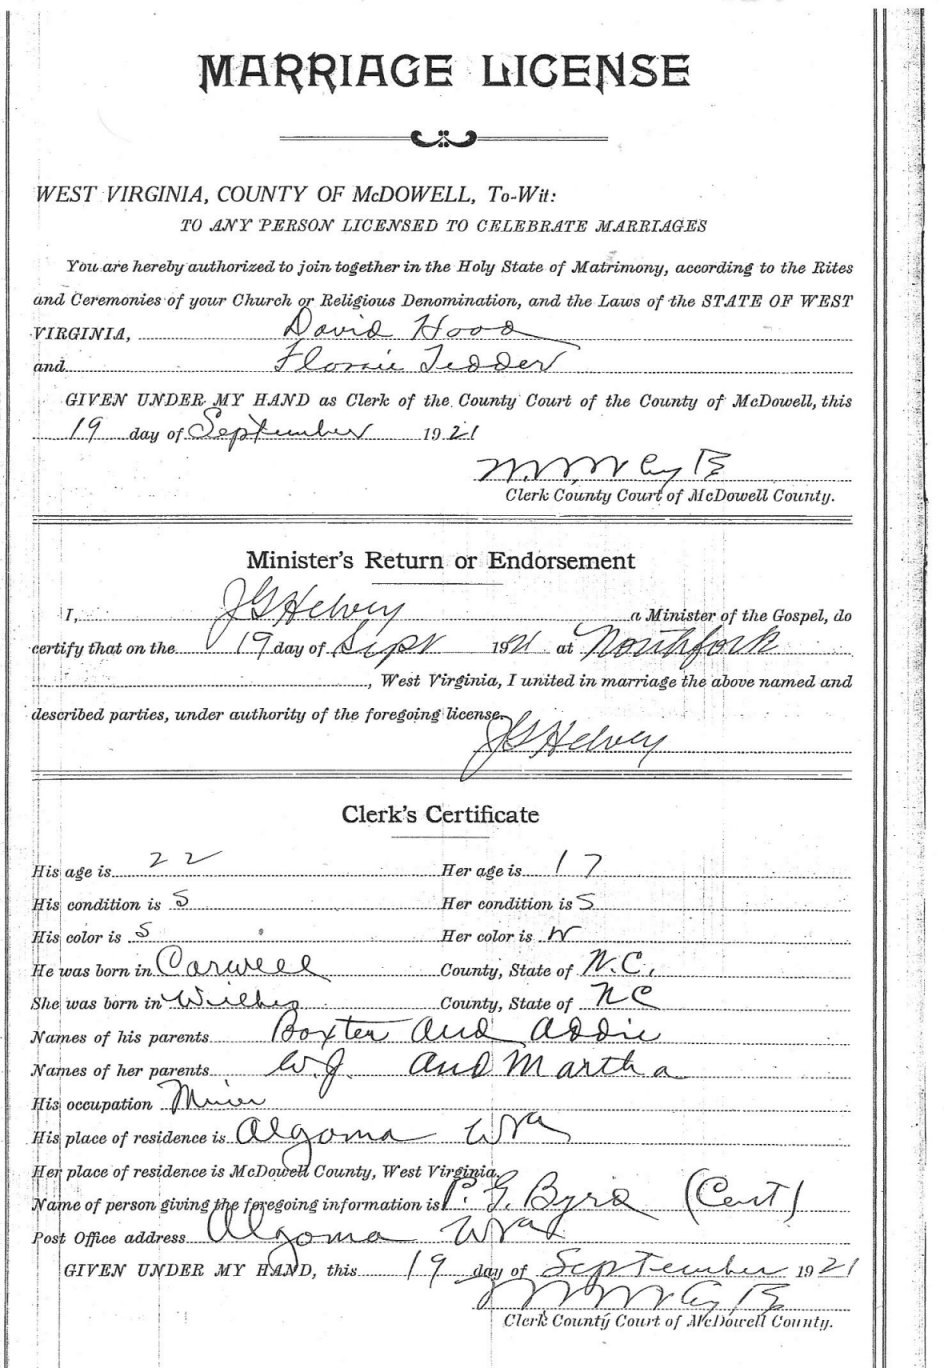 MARRIAGE LICENSE
WEST VIRGINIA, COUNTY OF McDOWELL, To-Wit:
TO ANY PERSON LICENSED TO CELEBRATE MARRIAGES
You are hereby authorized to join together in the Holy State of Matrimony, according to the Rites
and Ceremonies of your Church or Religious Denomination, and the Laws of the STATE OF WEST
VIRGINIA, David Hood
and Flossie Tedder
GIVEN UNDER MY HAND as Clerk of the County Court of the County of McDowell, this
19 day of September 1921
Clerk County Court of McDowell County.
Minister's Return or Endorsement
I, J G Helvey a Minister of the Gospel, do
certify that on the 19 day of Sept 1921 at Northfork
, West Virginia, I united in marriage the above named and
described parties, under authority of the foregoing license.
J G Helvey
Clerk's Certificate
His age is 22 Her age is 17
His condition is S Her condition is S
His color is S Her color is W
He was born in Carwell County, State of N.C.
She was born in Wilkes County, State of NC
Names of his parents Boxter and Addie
Names of her parents W.J. and Martha
His occupation Miner
His place of residence is Algoma WVa
Her place of residence is McDowell County, West Virginia.
Name of person giving the foregoing information is P. G. Byrd (Cert)
Post Office address Algoma WVa
GIVEN UNDER MY HAND, this 19 day of September 1921
Clerk County Court of McDowell County.